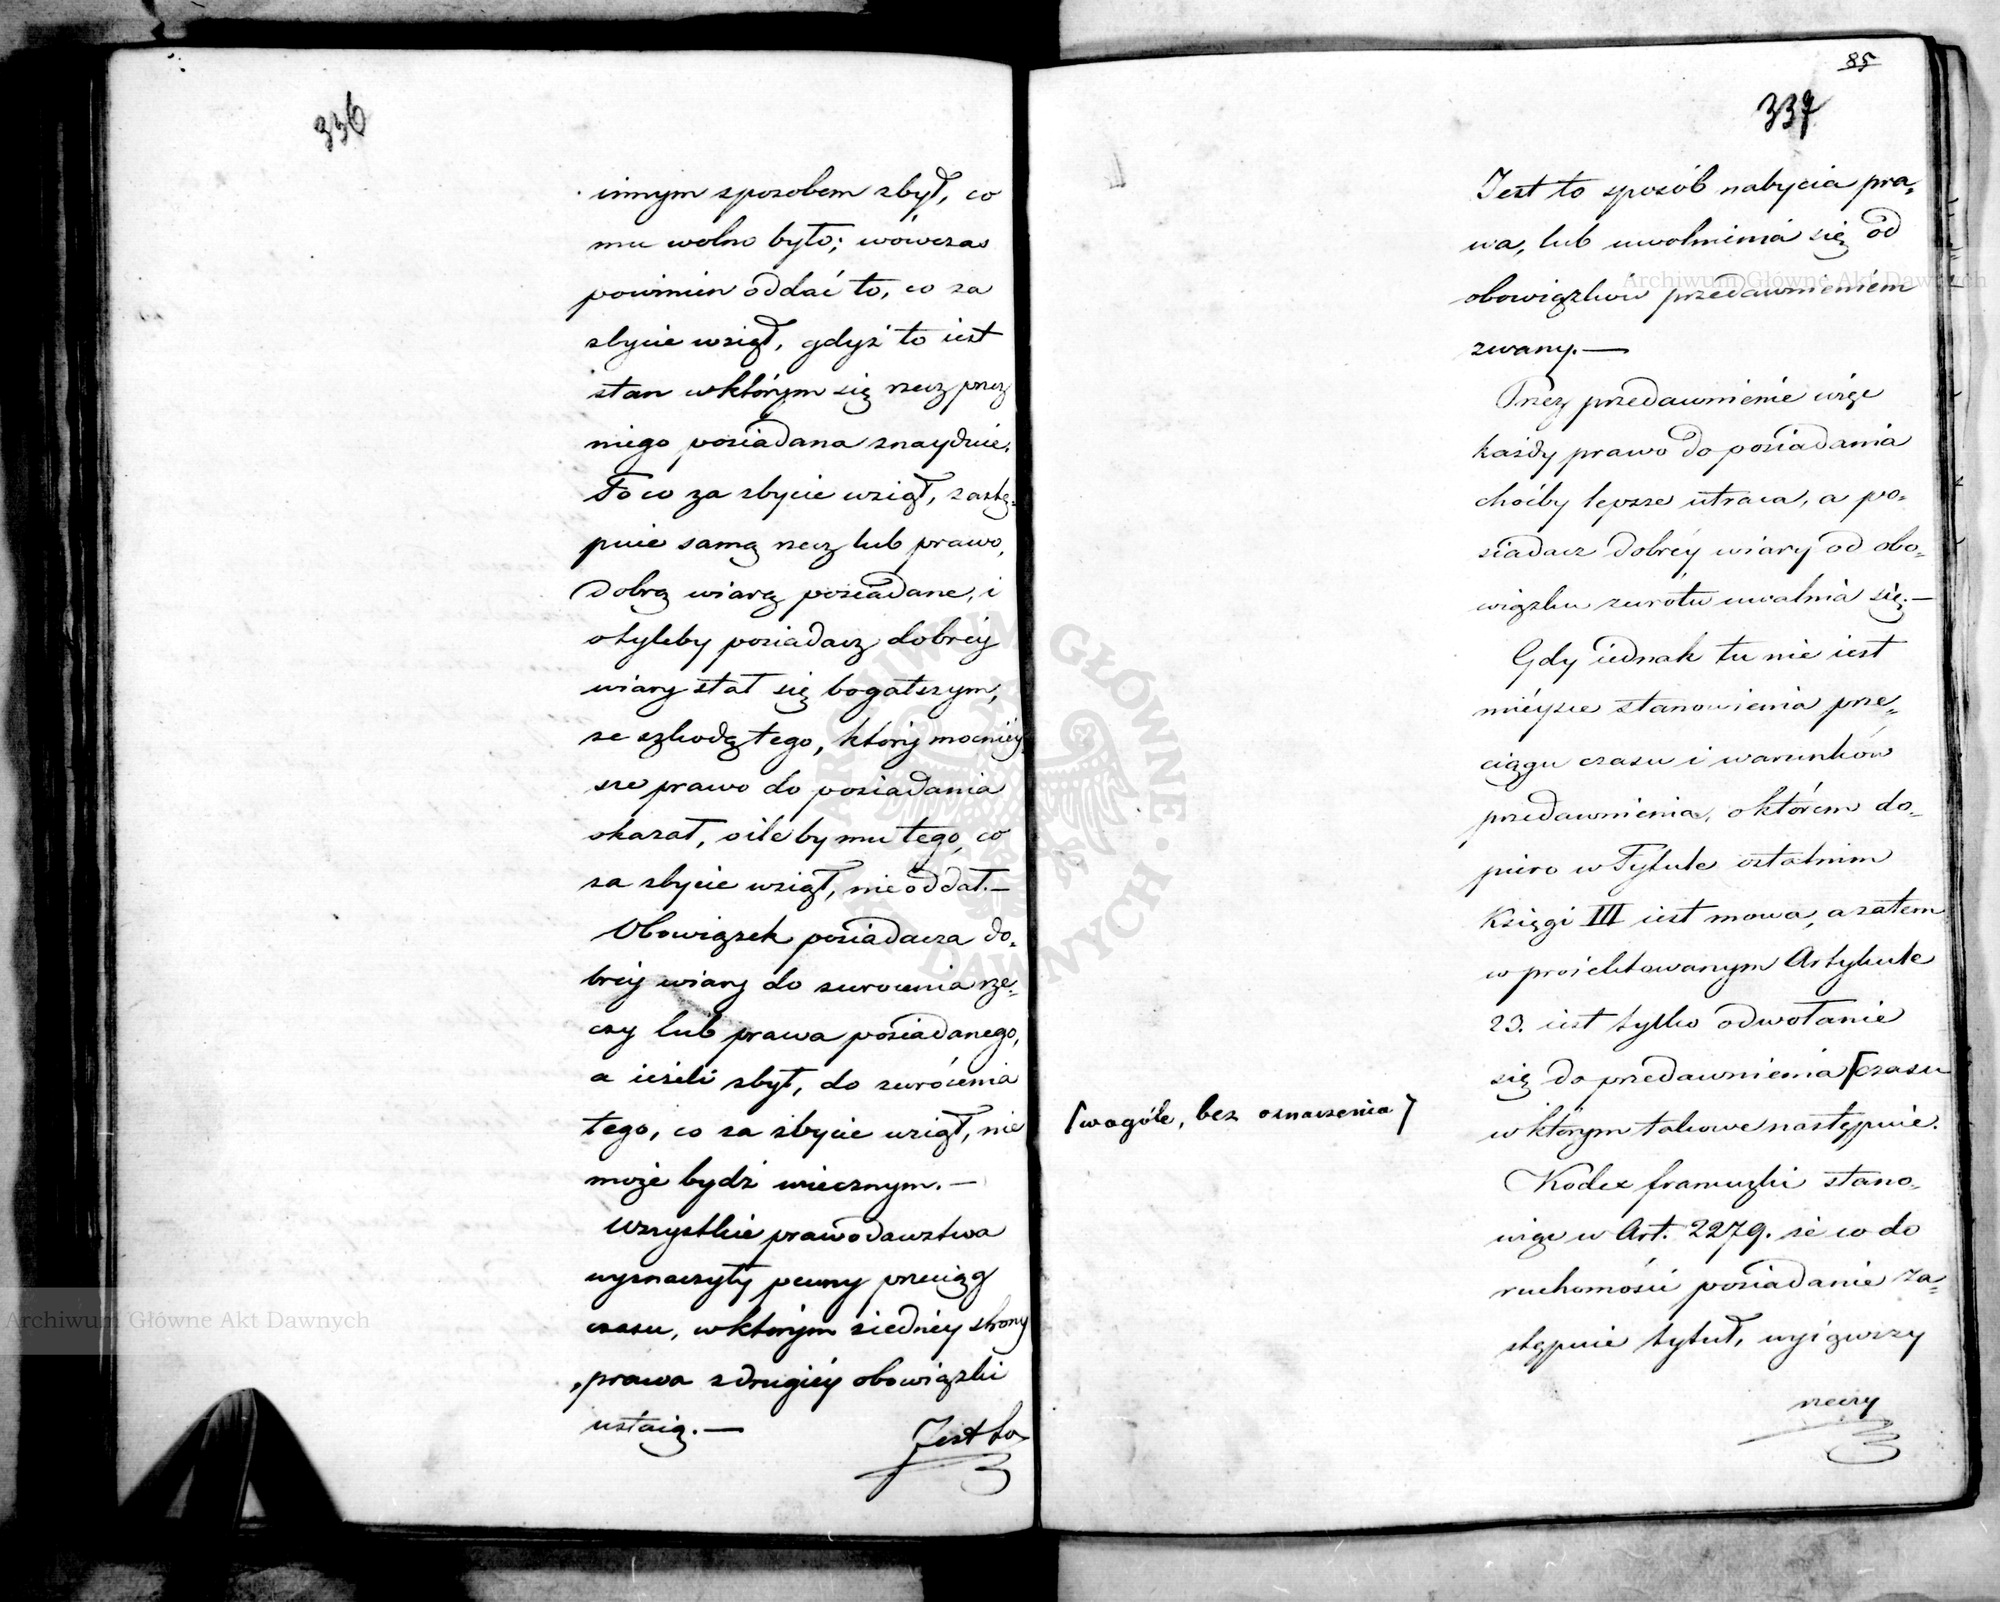 336
innym sposobem zbył, co
mu wolno było; wówczas
powinien oddać to, co za
zbycie wziął, gdyż to iest
stan w którym się rzecz przez
niego posiadana znayduie.
To co za zbycie wziął, zastę-
puie samą rzecz lub prawo,
dobrą wiarą posiadane, i
otyleby posiadacz dobréy
wiary stał się bogatszym,
ze szkodą tego, który mocniéy
sze prawo do posiadania
okazał, oile by mu tego, co
za zbycie wziął, nie oddał.—
Obowiązek posiadacza do-
bréy wiary do zwrócenia rze-
czy lub prawa posiadanego,
a ieżeli zbył, do zwrócenia
tego, co za zbycie wziął, nie
może bydź wiecznym.—
Wszystkie prawodawstwa
wyznaczyły pewny przeciąg
czasu, w którym z iednéy strony
prawa z drugiéy obowiązki
ustaią.—
Jest to
85
337
Jest to sposób nabycia pra-
wa, lub uwolnienia się od
obowiązków przedawnieniem
zwany.—
Przez przedawnienie więc
każdy prawo do posiadania
choćby lepsze utraca, a po-
siadacz dobréy wiary od obo-
wiązku zwrotu uwalnia się.—
Gdy iednak tu nie iest
miéysce stanowienia prze-
ciągu czasu i warunków
przedawnienia, o którem do-
piero w Tytule ostatnim
Księgi III iest mowa, a zatem
w proiektowanym Artykule
23. iest tylko odwołanie
się do przedawnienia [czasu
[wogóle, bez oznaczenia]
w którym takowe następuie.
Kodex francuzki stano-
wiąc w Art. 2279. że co do
ruchomości posiadanie za-
stępuie tytuł, wyiąwszy
rzeczy
Archiwum Główne Akt Dawnych
Archiwum Główne Akt Dawnych
ARCHIWUM GŁÓWNE AKT DAWNYCH